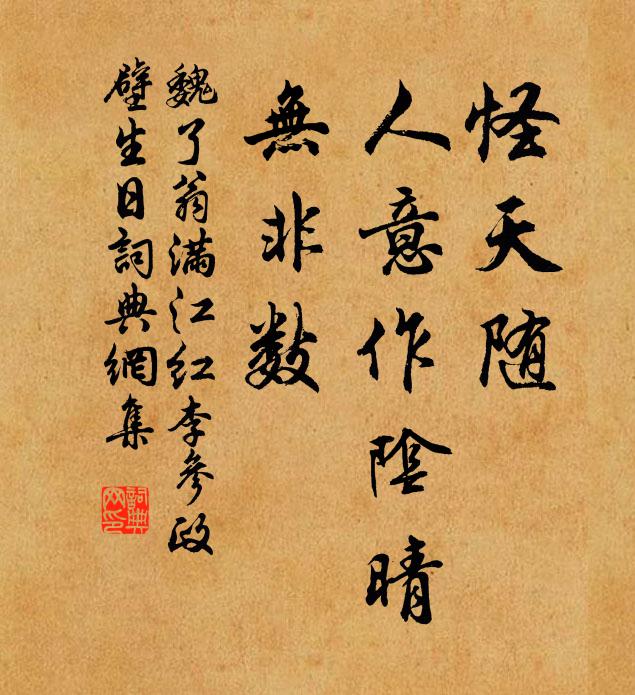 怪天随
人意作陰晴
無非数
魏了翁满江红李參政
壁生日詞典網集
詞典
网印